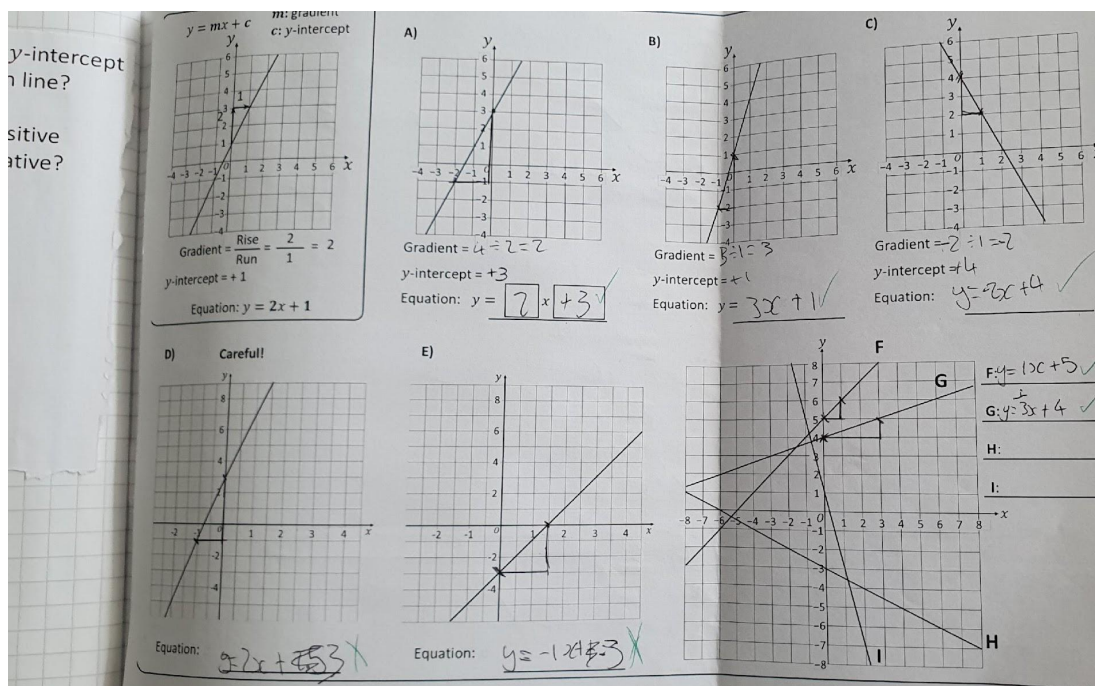 y-intercept
n line?
sitive
ative?
y = mx + c
m: gradient
c: y-intercept
y
6
5
4
3
2
1
2
1
-4 -3 -2 -1 0 1 2 3 4 5 6 x
-1
-3
-4
Gradient = Rise/Run = 2/1 = 2
y-intercept = + 1
Equation: y = 2x + 1
A)
y
6
5
4
3
2
1
-4 -3 -2 -1 0 1 2 3 4 5 6 x
-1
-2
-3
-4
Gradient = 4 ÷ 2 = 2
y-intercept = +3
Equation: y = 2 x +3 ✓
B)
y
6
5
4
3
2
1
-4 -3 -2 -1 1 2 3 4 5 6 x
-2
-4
Gradient = 3÷1=3
y-intercept = +1
Equation: y = 3x + 1 ✓
C)
y
6
5
4
3
2
1
-4 -3 -2 -1 0 1 2 3 4 5 6
-1
-2
-3
-4
Gradient = -2 ÷ 1 = -2
y-intercept = +4
Equation: y = -2x + 4 ✓
D) Careful!
y
8
6
4
2
-2 -1 0 1 2 3 4 x
-2
-4
Equation: y=2x + 3
E)
y
8
6
4
2
-2 -1 0 1 2 3 4 x
-2
-4
Equation: y = -1x -3
y
F
G
H
I
8
7
6
5
4
3
2
1
-8 -7 -6 -5 -4 -3 -2 -1 0 1 2 3 4 5 6 7 8 x
-1
-2
-3
-4
-5
-6
-7
-8
F: y = 1x + 5 ✓
G: y = 3x + 4 ✓
H:
I: